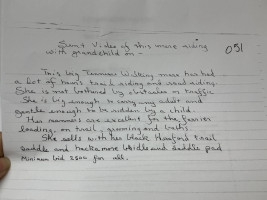 Sent Video of this mare riding
with grandchild on -
051
This big Tennessee Walking mare has had
a lot of hours trail riding and road riding.
She is not bothered by obstacles or traffic
She is big enough to carry any adult and
gentle enough to be ridden by a child.
Her manners are excellent for the farrier
loading, on trail, grooming and baths
She sells with her black Hereford trail
saddle and hackamore bridle and saddle pad
Minimum bid 3500 for all.